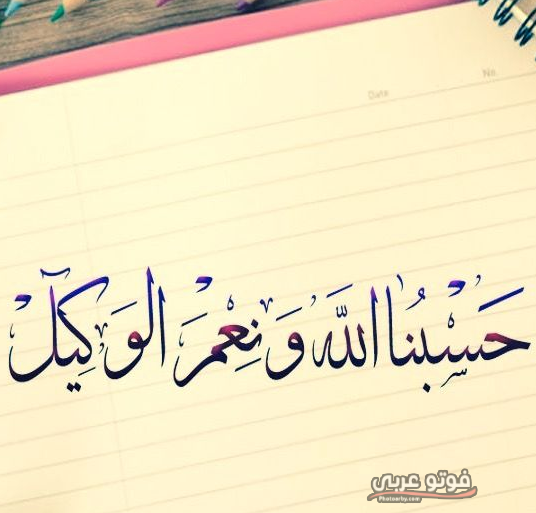 No.
Date
حَسْبُنا اللَّه وَ نِعْمَ الوَكِيلْ
فوتو عربي
Photoarby.com